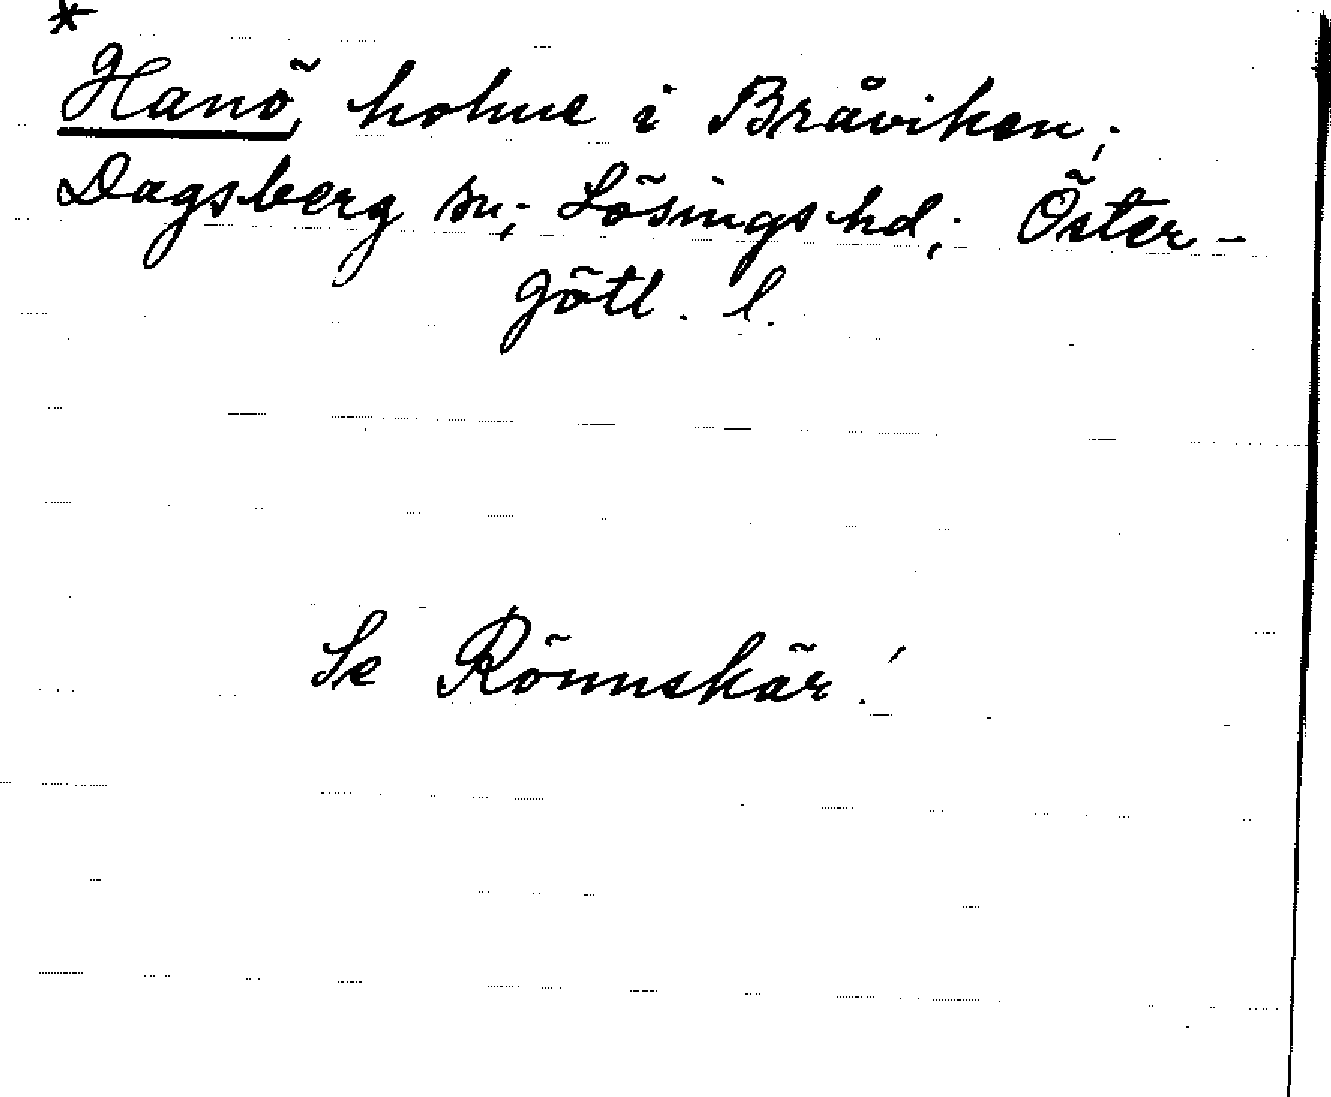 *
Hanö, holme i Bråviken;
Dagsberg sn; Lösings hd; Öster-
götl. l.
Se Rönnskär!